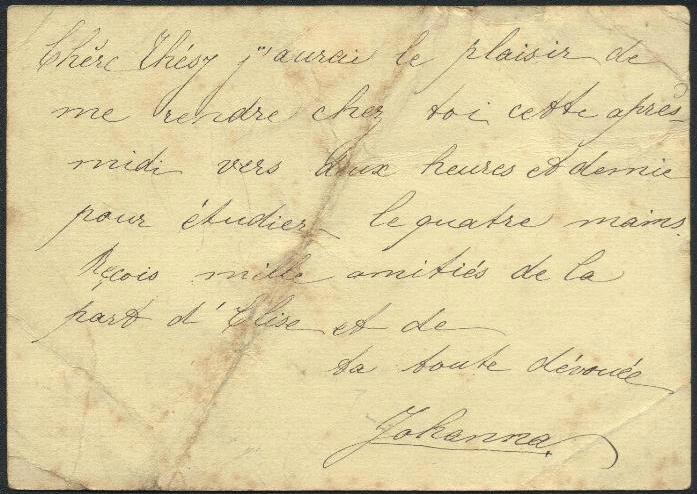 Chère Thésy j'aurai le plaisir de
me rendre chez toi cette après-
midi vers deux heures et demie
pour étudier le quatre mains.
Reçois mille amitiés de la
part d'Elise et de
ta toute dévouée
Johanna.